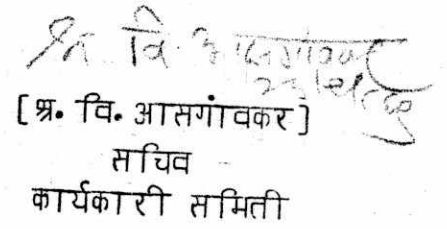 श्र. वि. आसगांवकर
[ श्र. वि. आसगांवकर ]
सचिव
कार्यकारी समिती